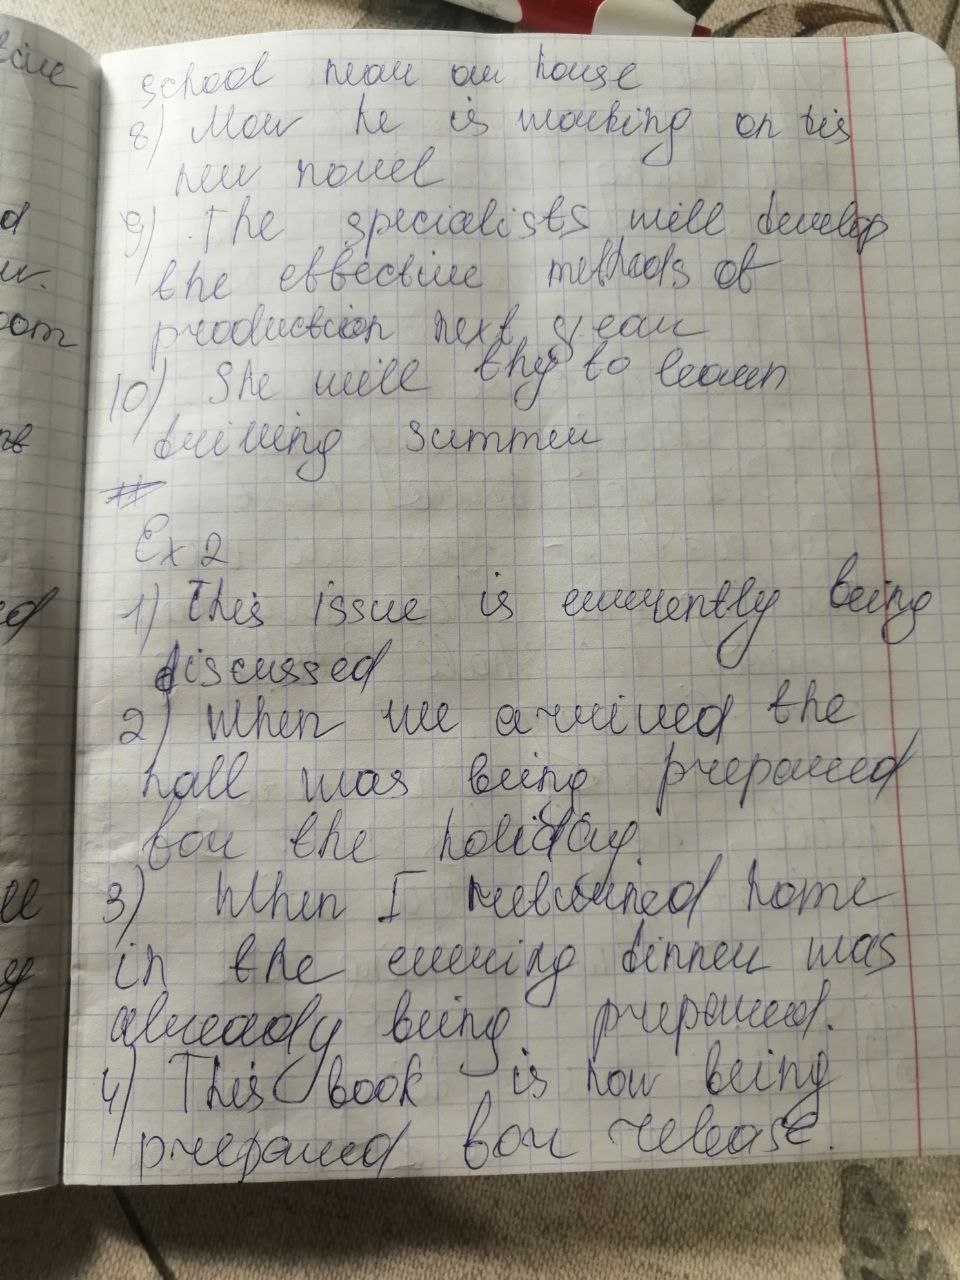 school near our house
8) Now he is working on his
new novel
9) The specialists will develop
the effective methods of
production next year
10) She will try to learn
driving summer
Ex 2
1) This issue is currently being
discussed
2) When we arrived the
hall was being prepared
for the holiday.
3) When I returned home
in the evening dinner was
already being prepared.
4) This book is now being
prepared for release.